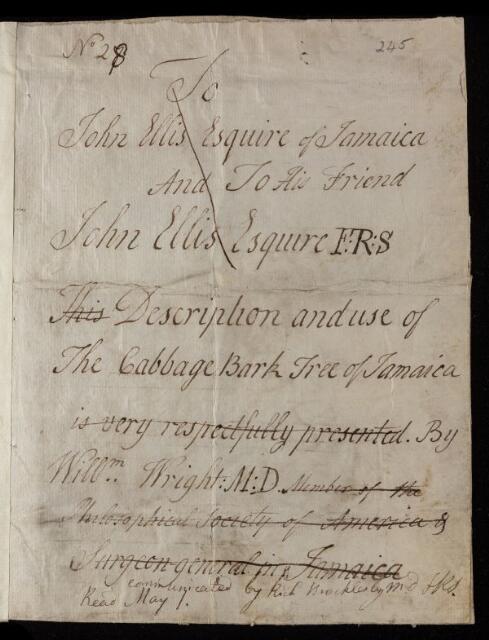 No 28
245
To
John Ellis Esquire of Jamaica
And To His Friend
John Ellis Esquire F:R:S
This Description and use of
The Cabbage Bark Tree of Jamaica
is very respectfully presented. By
Willm. Wright: M:D. Member of the
Philosophical Society of America &
Surgeon general in Jamaica
communicated by Rich Brocklesby M D FRS.
Read May 1.